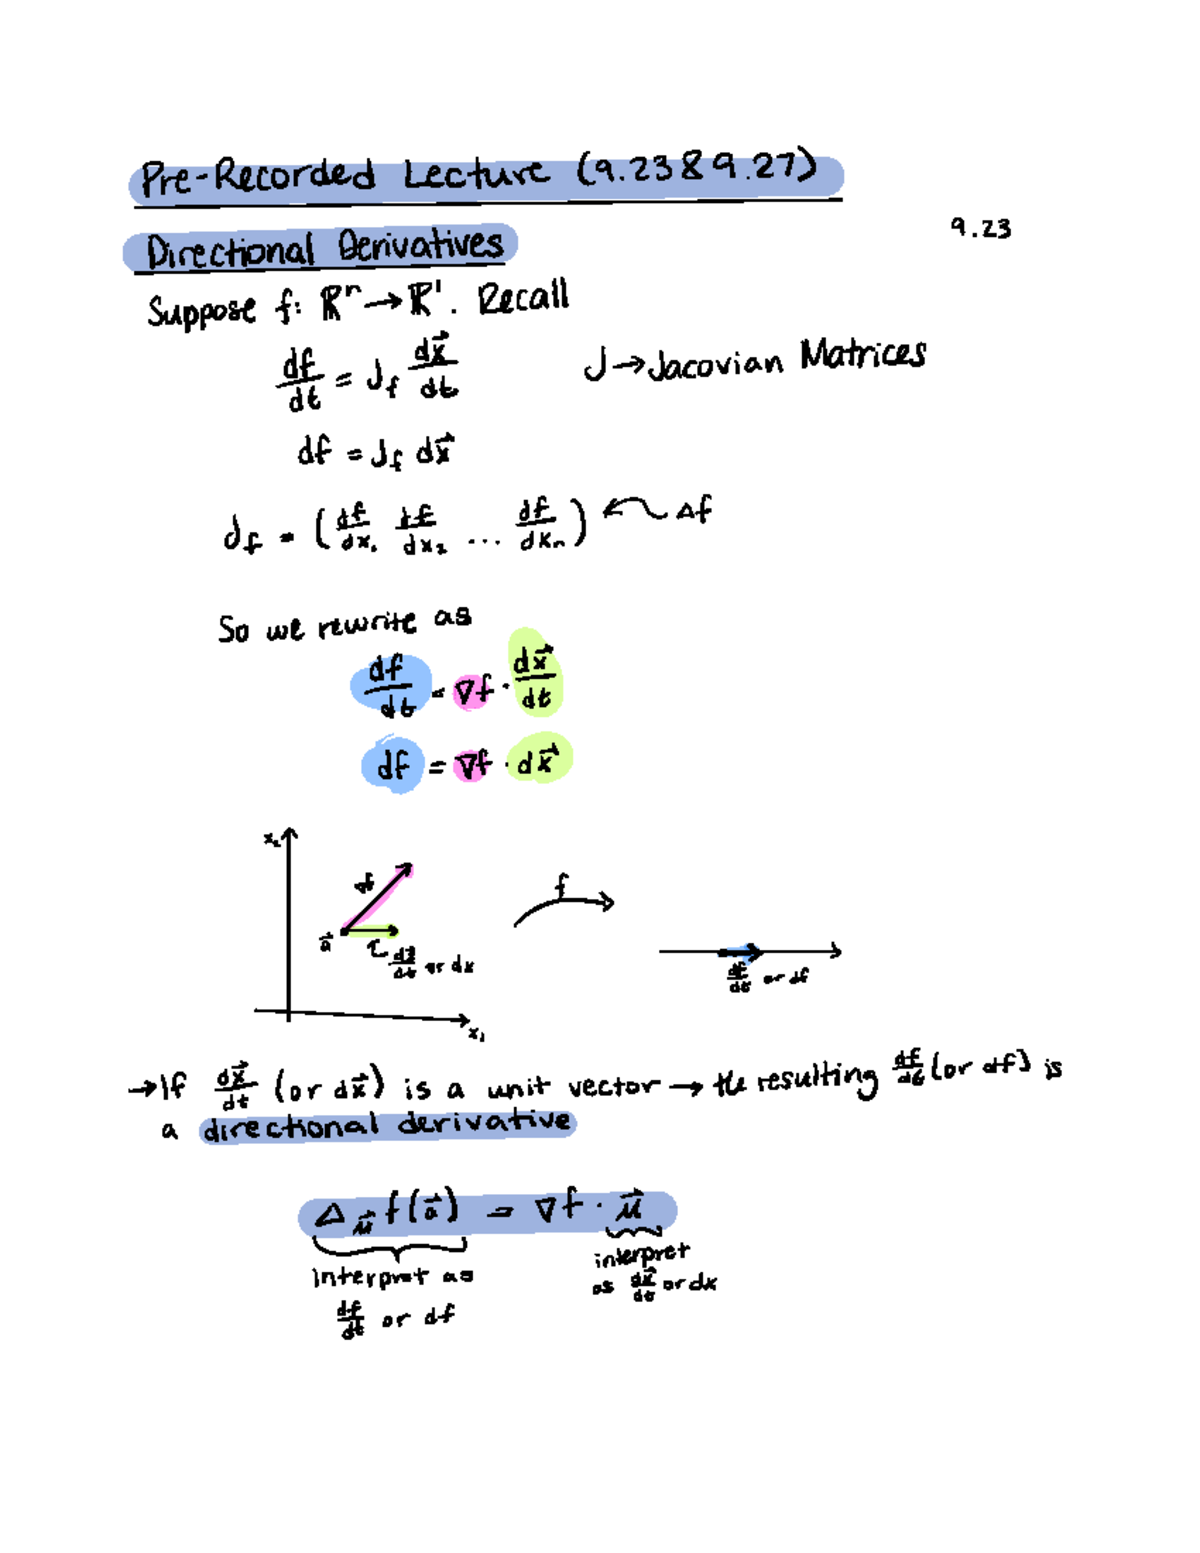 Pre-Recorded Lecture (9.23 & 9.27)
9.23
Directional Derivatives
Suppose f: ℝⁿ → ℝ¹. Recall
df/dt = J_f dx⃗/dt
J → Jacovian Matrices
df = J_f dx⃗
J_f = (df/dx₁ df/dx₂ ... df/dxₙ) Δf
So we rewrite as
df/dt = ∇f · dx⃗/dt
df = ∇f · dx⃗
x₂
∇f
f
a⃗
dx⃗/dt or dx
df/dt or df
x₁
→ If dx⃗/dt (or dx⃗) is a unit vector → the resulting df/dt (or df) is
a directional derivative
Δ_u⃗ f(a⃗) = ∇f · u⃗
interpret as
df/dt or df
interpret
as dx⃗/dt or dx